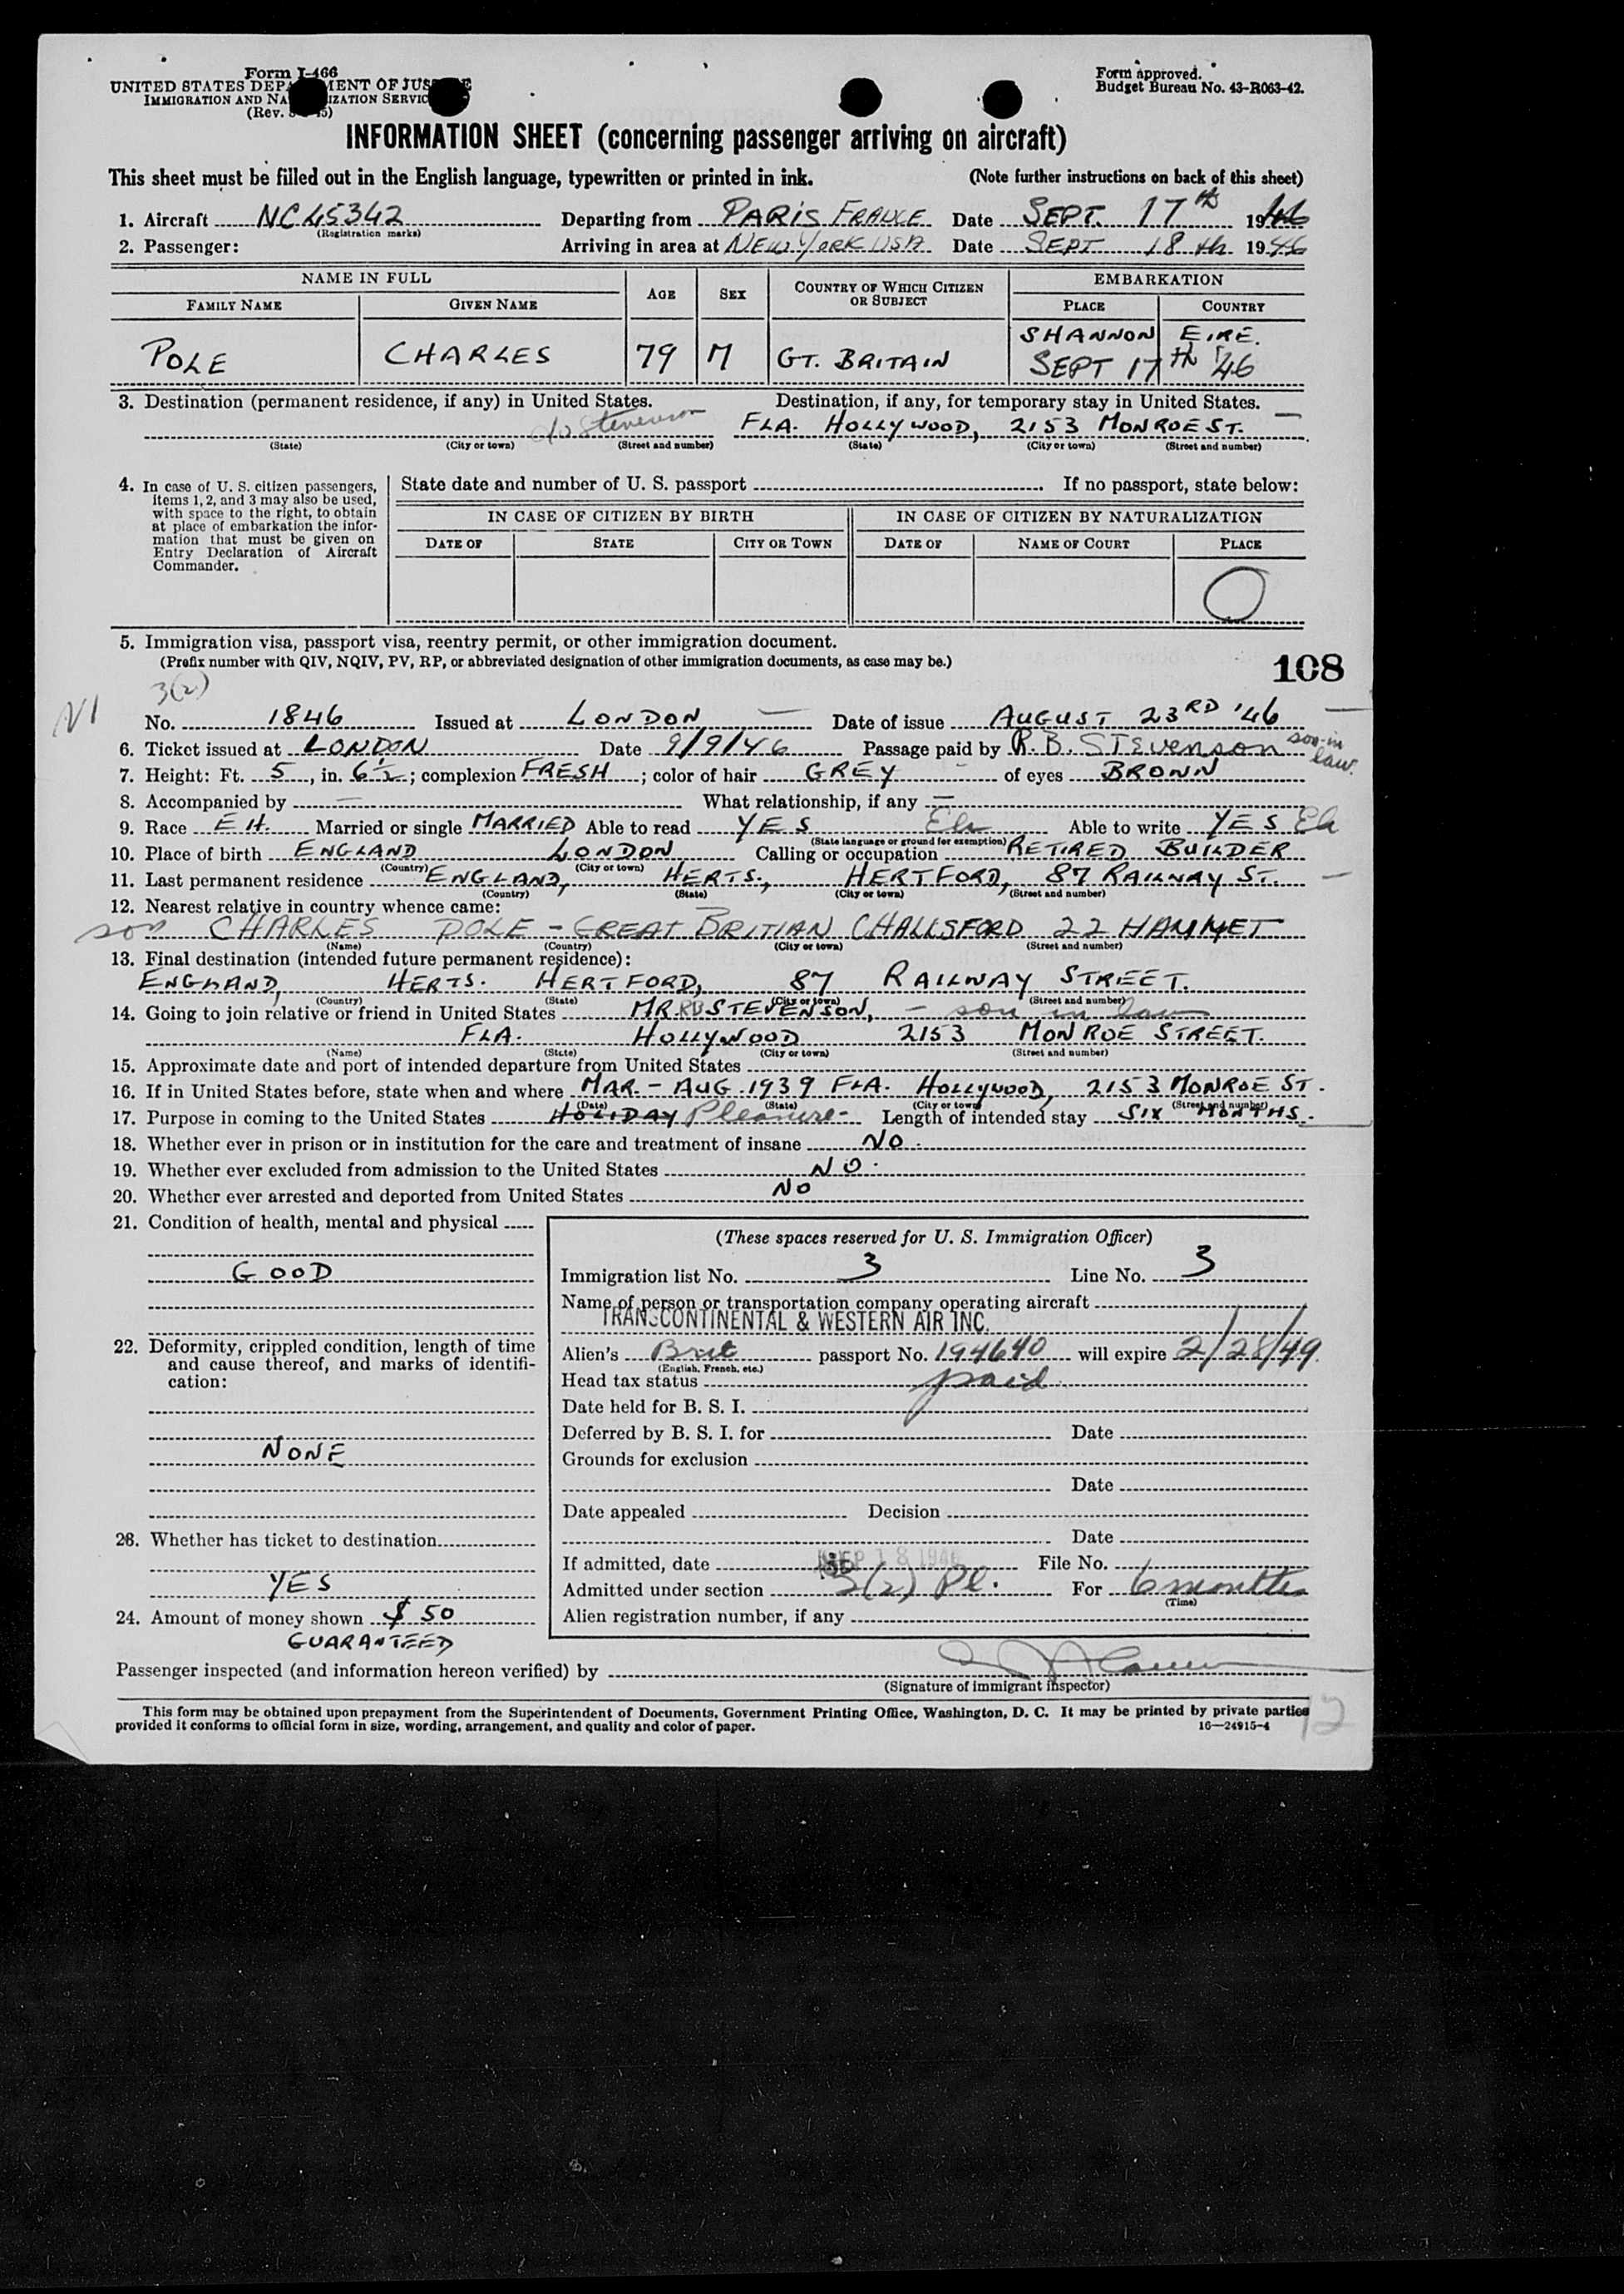 Form I-466
UNITED STATES DEP MENT OF JUS E
IMMIGRATION AND NA IZATION SERVIC
(Rev. 5)
Form approved.
Budget Bureau No. 43-R063-42.
INFORMATION SHEET (concerning passenger arriving on aircraft)
This sheet must be filled out in the English language, typewritten or printed in ink. (Note further instructions on back of this sheet)
1. Aircraft NC45342 Departing from PARIS FRANCE Date SEPT. 17th 1946
(Registration marks)
2. Passenger: Arriving in area at NEW YORK USA Date SEPT 18th 1946
NAME IN FULL AGE SEX COUNTRY OF WHICH CITIZEN OR SUBJECT EMBARKATION
FAMILY NAME GIVEN NAME PLACE COUNTRY
SHANNON EIRE.
POLE CHARLES 79 M GT. BRITAIN SEPT 17TH '46
3. Destination (permanent residence, if any) in United States. Destination, if any, for temporary stay in United States.
c/o Stevenson FLA. HOLLYWOOD, 2153 MONROE ST.
(State) (City or town) (Street and number) (State) (City or town) (Street and number)
4. In case of U. S. citizen passengers, items 1, 2, and 3 may also be used, with space to the right, to obtain at place of embarkation the information that must be given on Entry Declaration of Aircraft Commander.
State date and number of U. S. passport If no passport, state below:
IN CASE OF CITIZEN BY BIRTH IN CASE OF CITIZEN BY NATURALIZATION
DATE OF STATE CITY OR TOWN DATE OF NAME OF COURT PLACE
5. Immigration visa, passport visa, reentry permit, or other immigration document.
(Prefix number with QIV, NQIV, PV, RP, or abbreviated designation of other immigration documents, as case may be.)
108
3(2)
No. 1846 Issued at LONDON Date of issue AUGUST 23RD '46
6. Ticket issued at LONDON Date 9/9/46 Passage paid by R. B. STEVENSON son-in law.
7. Height: Ft. 5, in. 6½; complexion FRESH; color of hair GREY of eyes BROWN
8. Accompanied by — What relationship, if any —
9. Race E.H. Married or single MARRIED Able to read YES Able to write YES
(State language or ground for exemption)
10. Place of birth ENGLAND LONDON Calling or occupation RETIRED BUILDER
(Country) (City or town)
11. Last permanent residence ENGLAND, HERTS., HERTFORD, 87 RAILWAY ST.
(Country) (State) (City or town) (Street and number)
12. Nearest relative in country whence came:
son CHARLES POLE - GREAT BRITIAN CHALLSFORD 22 HAMMET
(Name) (Country) (City or town) (Street and number)
13. Final destination (intended future permanent residence):
ENGLAND, HERTS. HERTFORD, 87 RAILWAY STREET.
(Country) (State) (City or town) (Street and number)
14. Going to join relative or friend in United States MR. RB STEVENSON, - son in law
FLA. HOLLYWOOD 2153 MONROE STREET.
(Name) (State) (City or town) (Street and number)
15. Approximate date and port of intended departure from United States
16. If in United States before, state when and where MAR.- AUG. 1939 FLA. HOLLYWOOD, 2153 MONROE ST.
(Date) (State) (City or town) (Street and number)
17. Purpose in coming to the United States HOLIDAY Pleasure- Length of intended stay SIX MONTHS.
18. Whether ever in prison or in institution for the care and treatment of insane NO.
19. Whether ever excluded from admission to the United States NO.
20. Whether ever arrested and deported from United States NO
21. Condition of health, mental and physical
GOOD
22. Deformity, crippled condition, length of time and cause thereof, and marks of identification:
NONE
23. Whether has ticket to destination
YES
24. Amount of money shown $ 50
GUARANTEED
(These spaces reserved for U. S. Immigration Officer)
Immigration list No. 3 Line No. 3
Name of person or transportation company operating aircraft
TRANSCONTINENTAL & WESTERN AIR INC.
Alien's Brit passport No. 194640 will expire 2/28/49.
(English, French, etc.)
Head tax status paid
Date held for B. S. I.
Deferred by B. S. I. for Date
Grounds for exclusion
Date
Date appealed Decision
Date
If admitted, date SEP 18 1946 File No.
Admitted under section 3(2) Pl. For 6 months
(Time)
Alien registration number, if any
Passenger inspected (and information hereon verified) by
(Signature of immigrant inspector)
This form may be obtained upon prepayment from the Superintendent of Documents, Government Printing Office, Washington, D. C. It may be printed by private parties
provided it conforms to official form in size, wording, arrangement, and quality and color of paper. 16—24915-4
12